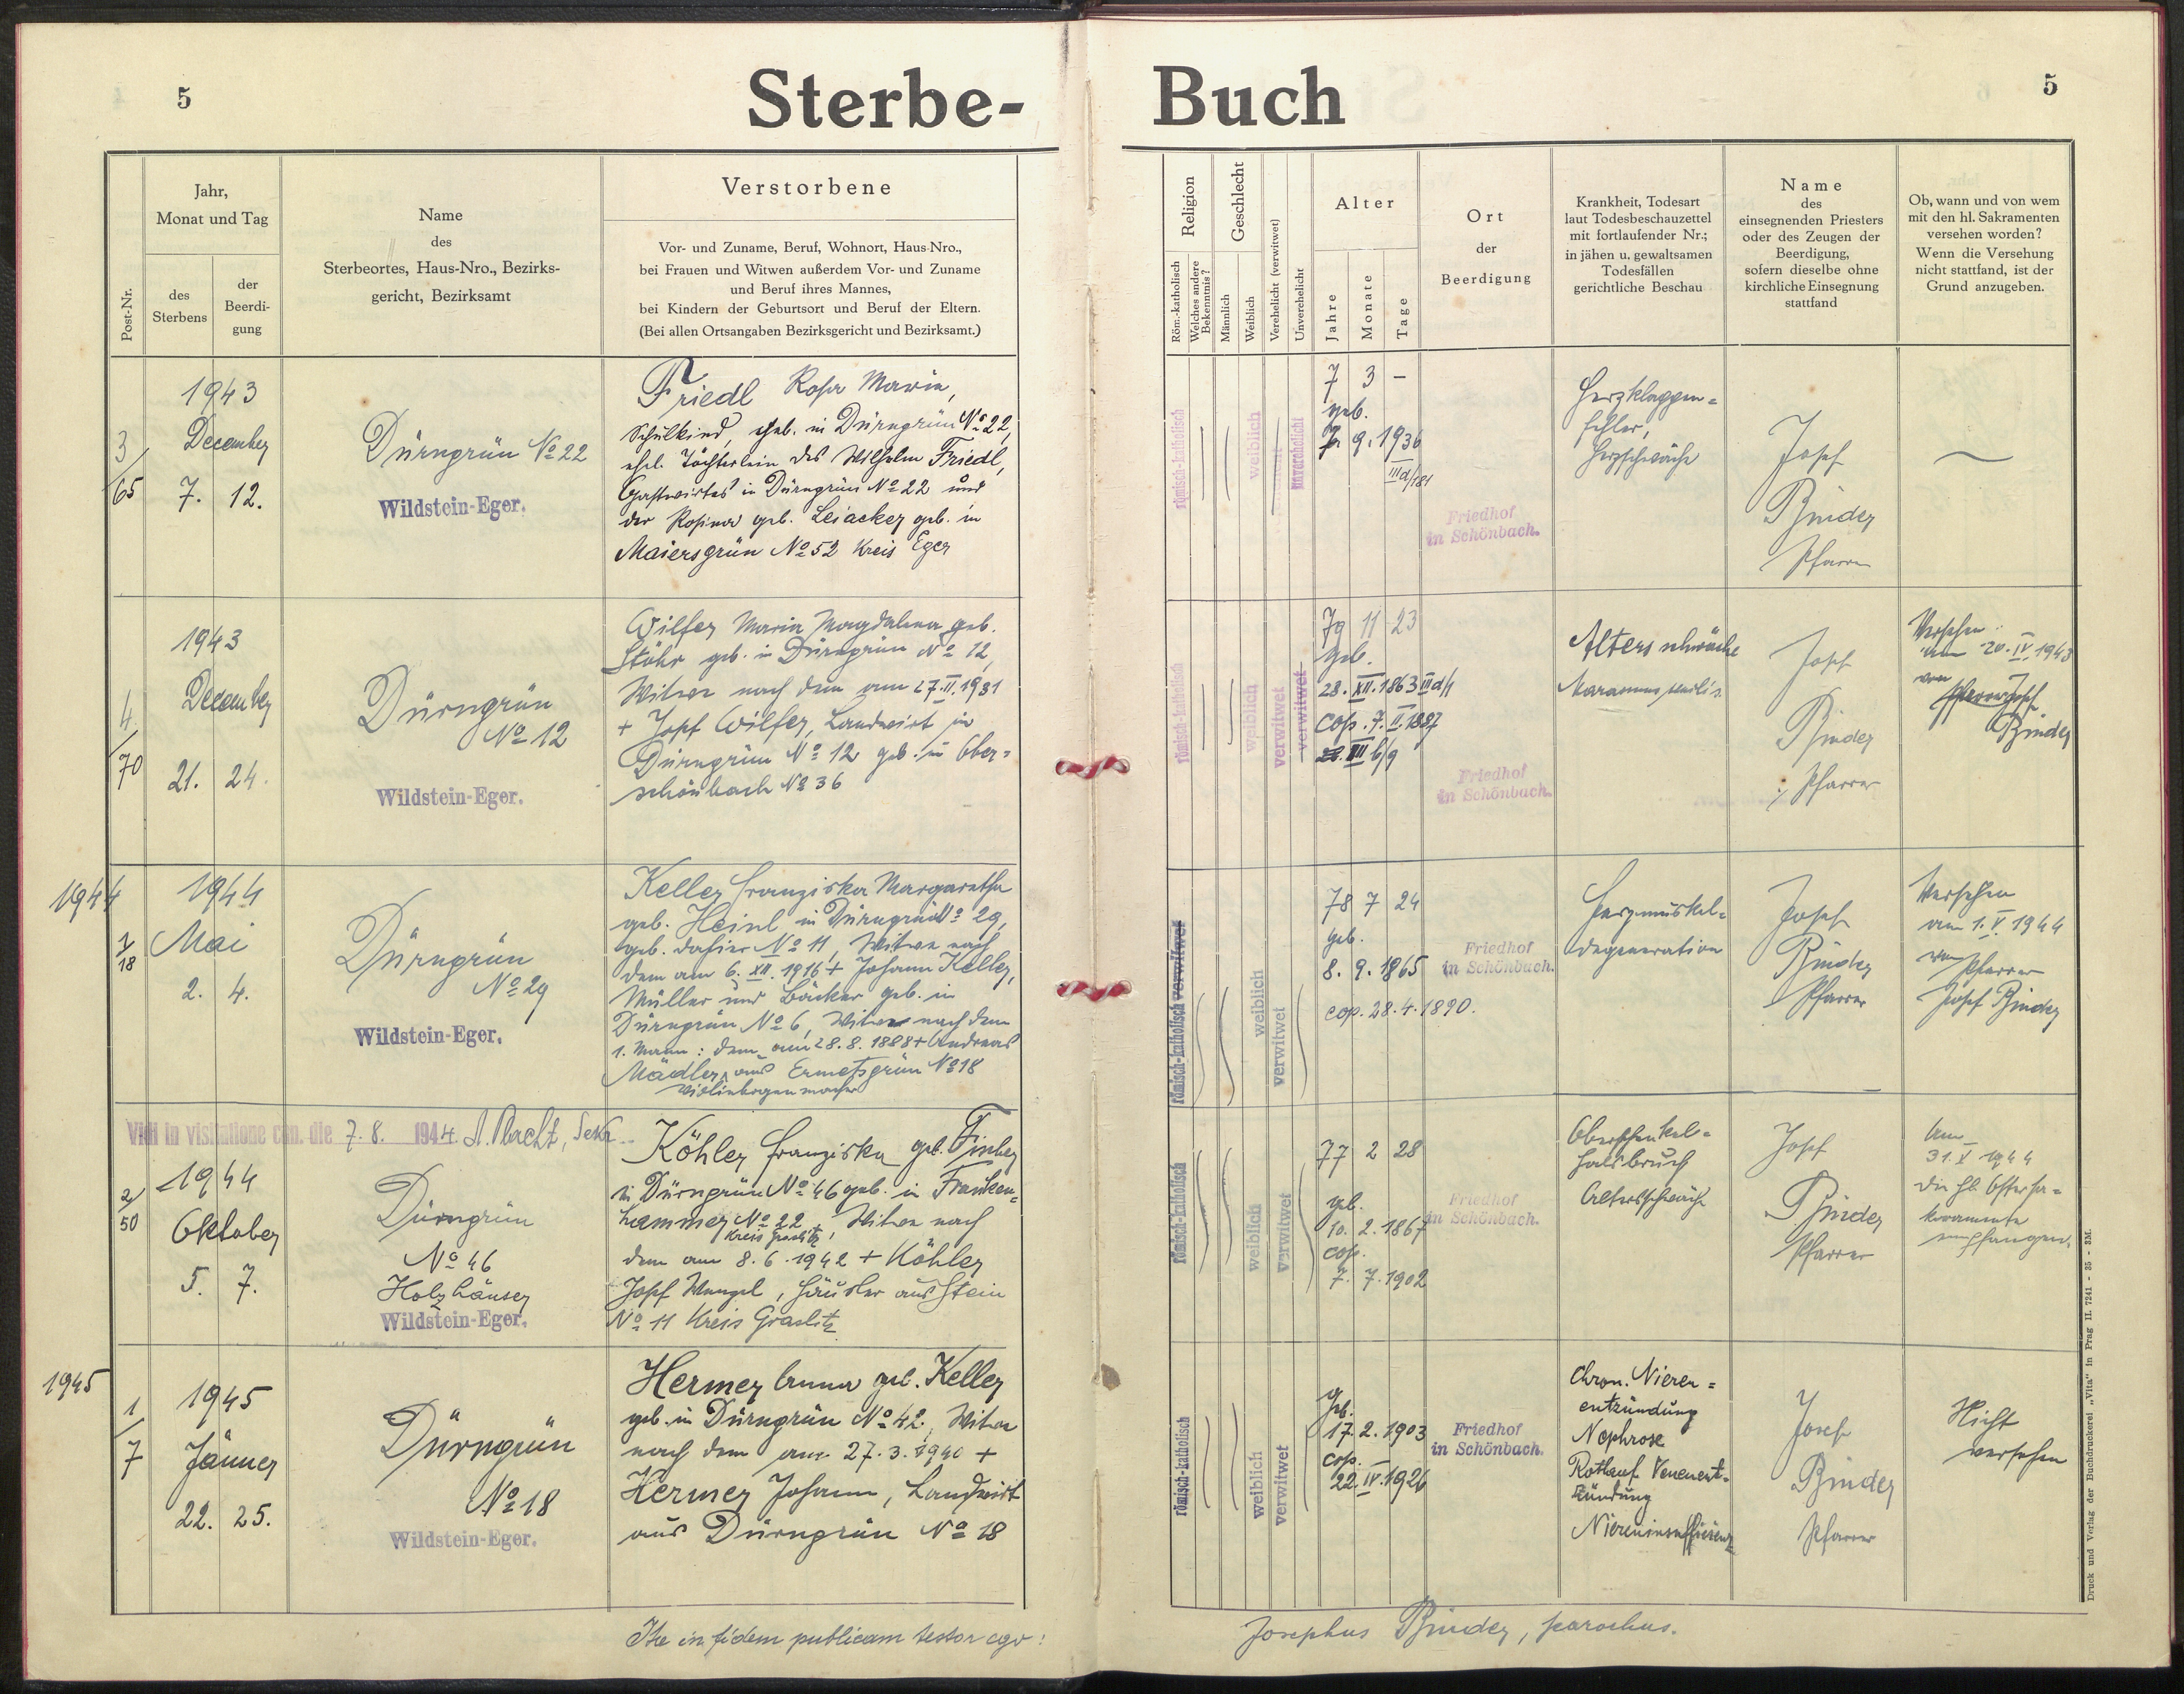 5
Sterbe-
Buch
5
Post-Nr.
Jahr,
Monat und Tag
des
Sterbens
der
Beerdi-
gung
Name
des
Sterbeortes, Haus-Nro., Bezirks-
gericht, Bezirksamt
Verstorbene
Vor- und Zuname, Beruf, Wohnort, Haus-Nro.,
bei Frauen und Witwen außerdem Vor- und Zuname
und Beruf ihres Mannes,
bei Kindern der Geburtsort und Beruf der Eltern.
(Bei allen Ortsangaben Bezirksgericht und Bezirksamt.)
Religion
Röm.-katholisch
Welches andere
Bekenntnis?
Geschlecht
Männlich
Weiblich
Verehelicht (verwitwet)
Unverehelicht
Alter
Jahre
Monate
Tage
Ort
der
Beerdigung
Krankheit, Todesart
laut Todesbeschauzettel
mit fortlaufender Nr.;
in jähen u. gewaltsamen
Todesfällen
gerichtliche Beschau
Name
des
einsegnenden Priesters
oder des Zeugen der
Beerdigung,
sofern dieselbe ohne
kirchliche Einsegnung
stattfand
Ob, wann und von wem
mit den hl. Sakramenten
versehen worden?
Wenn die Versehung
nicht stattfand, ist der
Grund anzugeben.
3/65
1943
December
7. 12.
Dürngrün No 22
Wildstein-Eger.
Friedl Rosa Maria,
Schulkind, geb. in Dürngrün No 22,
ehel. Töchterlein des Wilhelm Friedl,
Gastwirtes in Dürngrün No 22 und
der Rosina geb. Leiacker geb. in
Maiersgrün No 52 Kreis Eger
römisch-katholisch
weiblich
unverehelicht
7 3 –
geb.
7. 9. 1936
III d/181
Friedhof
in Schönbach.
Herzklappen=
fehler,
Herzschwäche
Josef
Binder
Pfarrer
4/70
1943
December
21. 24.
Dürngrün
No 12
Wildstein-Eger.
Wilfer Maria Magdalena geb.
Stöhr geb. in Dürngrün No 12,
Witwe nach dem am 27. II. 1931
+ Josef Wilfer, Landwirt in
Dürngrün No 12 geb. in Ober=
schönbach No 36
römisch-katholisch
weiblich
verwitwet
verwitwet
79 11 23
geb.
28. XII. 1863 III d/1
cop. 7. II. 1887
III b/9
Friedhof
in Schönbach.
Altersschwäche
Marasmus senilis.
Josef
Binder
Pfarrer
Versehen
am 20. IV. 1943
von
Pfarrer Josef
Binder
1944
1/18
1944
Mai
2. 4.
Dürngrün
No 29
Wildstein-Eger.
Keller Franziska Margaretha
geb. Heinl in Dürngrün No 29,
geb. dahier No 11, Witwe nach
dem am 6. XII. 1916 + Johann Keller,
Müller und Bäcker geb. in
Dürngrün No 6, Witwe nach dem
1. Mann: dem am 28. 8. 1888 + Andreas
Mädler, aus Ermetsgrün No 18
Violinbogenmacher
römisch-katholisch verwitwet
weiblich
verwitwet
78 7 24
geb.
8. 9. 1865
cop. 28. 4. 1890.
Friedhof
in Schönbach.
Herzmuskel=
degeneration
Josef
Binder
Pfarrer
Versehen
am 1. V. 1944
von Pfarrer
Josef Binder
Vidi in visitatione can. die 7. 8. 1944.
2/50
1944
Oktober
5. 7.
Dürngrün
No 46
Holzhäuser
Wildstein-Eger.
Köhler Franziska geb.
in Dürngrün No 46 geb. in Franken=
hammer No 22, Witwe nach
Kreis Graslitz
dem am 8. 6. 1942 + Köhler
Josef Wenzel, Häusler aus Stein
No 11 Kreis Graslitz
römisch-katholisch
weiblich
verwitwet
77 2 28
geb.
10. 2. 1867
cop.
7. 7. 1902
Friedhof
in Schönbach.
Oberschenkel=
halsbruch
Altersschwäche
Josef
Binder
Pfarrer
Am
31. V. 1944
die hl. Ostersa=
kramente
empfangen.
1945
1/7
1945
Jänner
22. 25.
Dürngrün
No 18
Wildstein-Eger.
Hermer Anna geb. Keller
geb. in Dürngrün No 42, Witwe
nach dem am 27. 3. 1940 +
Hermer Johann, Landwirt
aus Dürngrün No 18
römisch-katholisch
weiblich
verwitwet
geb.
17. 2. 1903
cop.
22. IV. 1926
Friedhof
in Schönbach.
Chron. Nieren=
entzündung
Nephrose
Rotlauf Venenent=
zündung
Niereninsuffizienz
Josef
Binder
Pfarrer
Nicht
versehen
Ita in fidem publicam testor ego:
Josephus Binder, parochus.
Druck und Verlag der Buchdruckerei „Vita" in Prag II. 7241 - 35 - 3M.